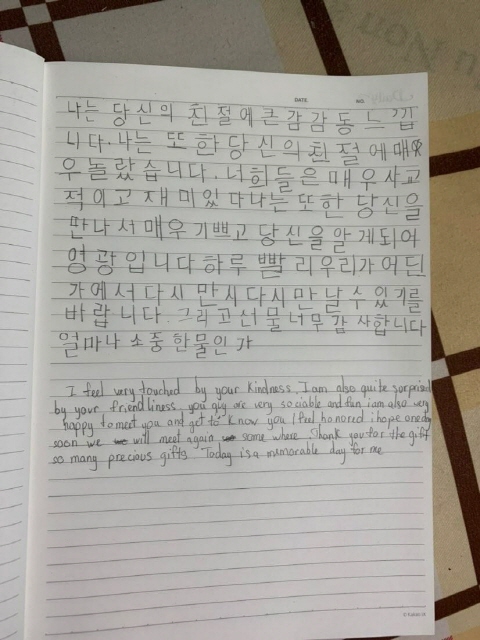 DATE. NO.
나는 당신의 친절에 큰 감감 동 느낍
니다. 나는 또 한 당 신의 친 절 에 매
우 놀랐 습니다. 너희들은 매 우 사교
적이고 재 미있 다나는 또한 당신을
만나서 매우 기쁘고 당신을 알 게되어
영 광 입니다 하루 빨 리 우리가 어딘
가에서 다시 만 시 다시 만 날 수 있기를
바랍 니다. 그리고 선물 너무 감 사합니다
얼마나 소중 한물인 가
I feel very touched by your Kindness, I am also quite surprised
by your friendliness you guy are very sociable and fun i am also very
happy to meet you and get to know you I feel honored i hope oneday
soon we will meet again some where. Thank you for the gift
so many precious gifts Today is a memorable day for me